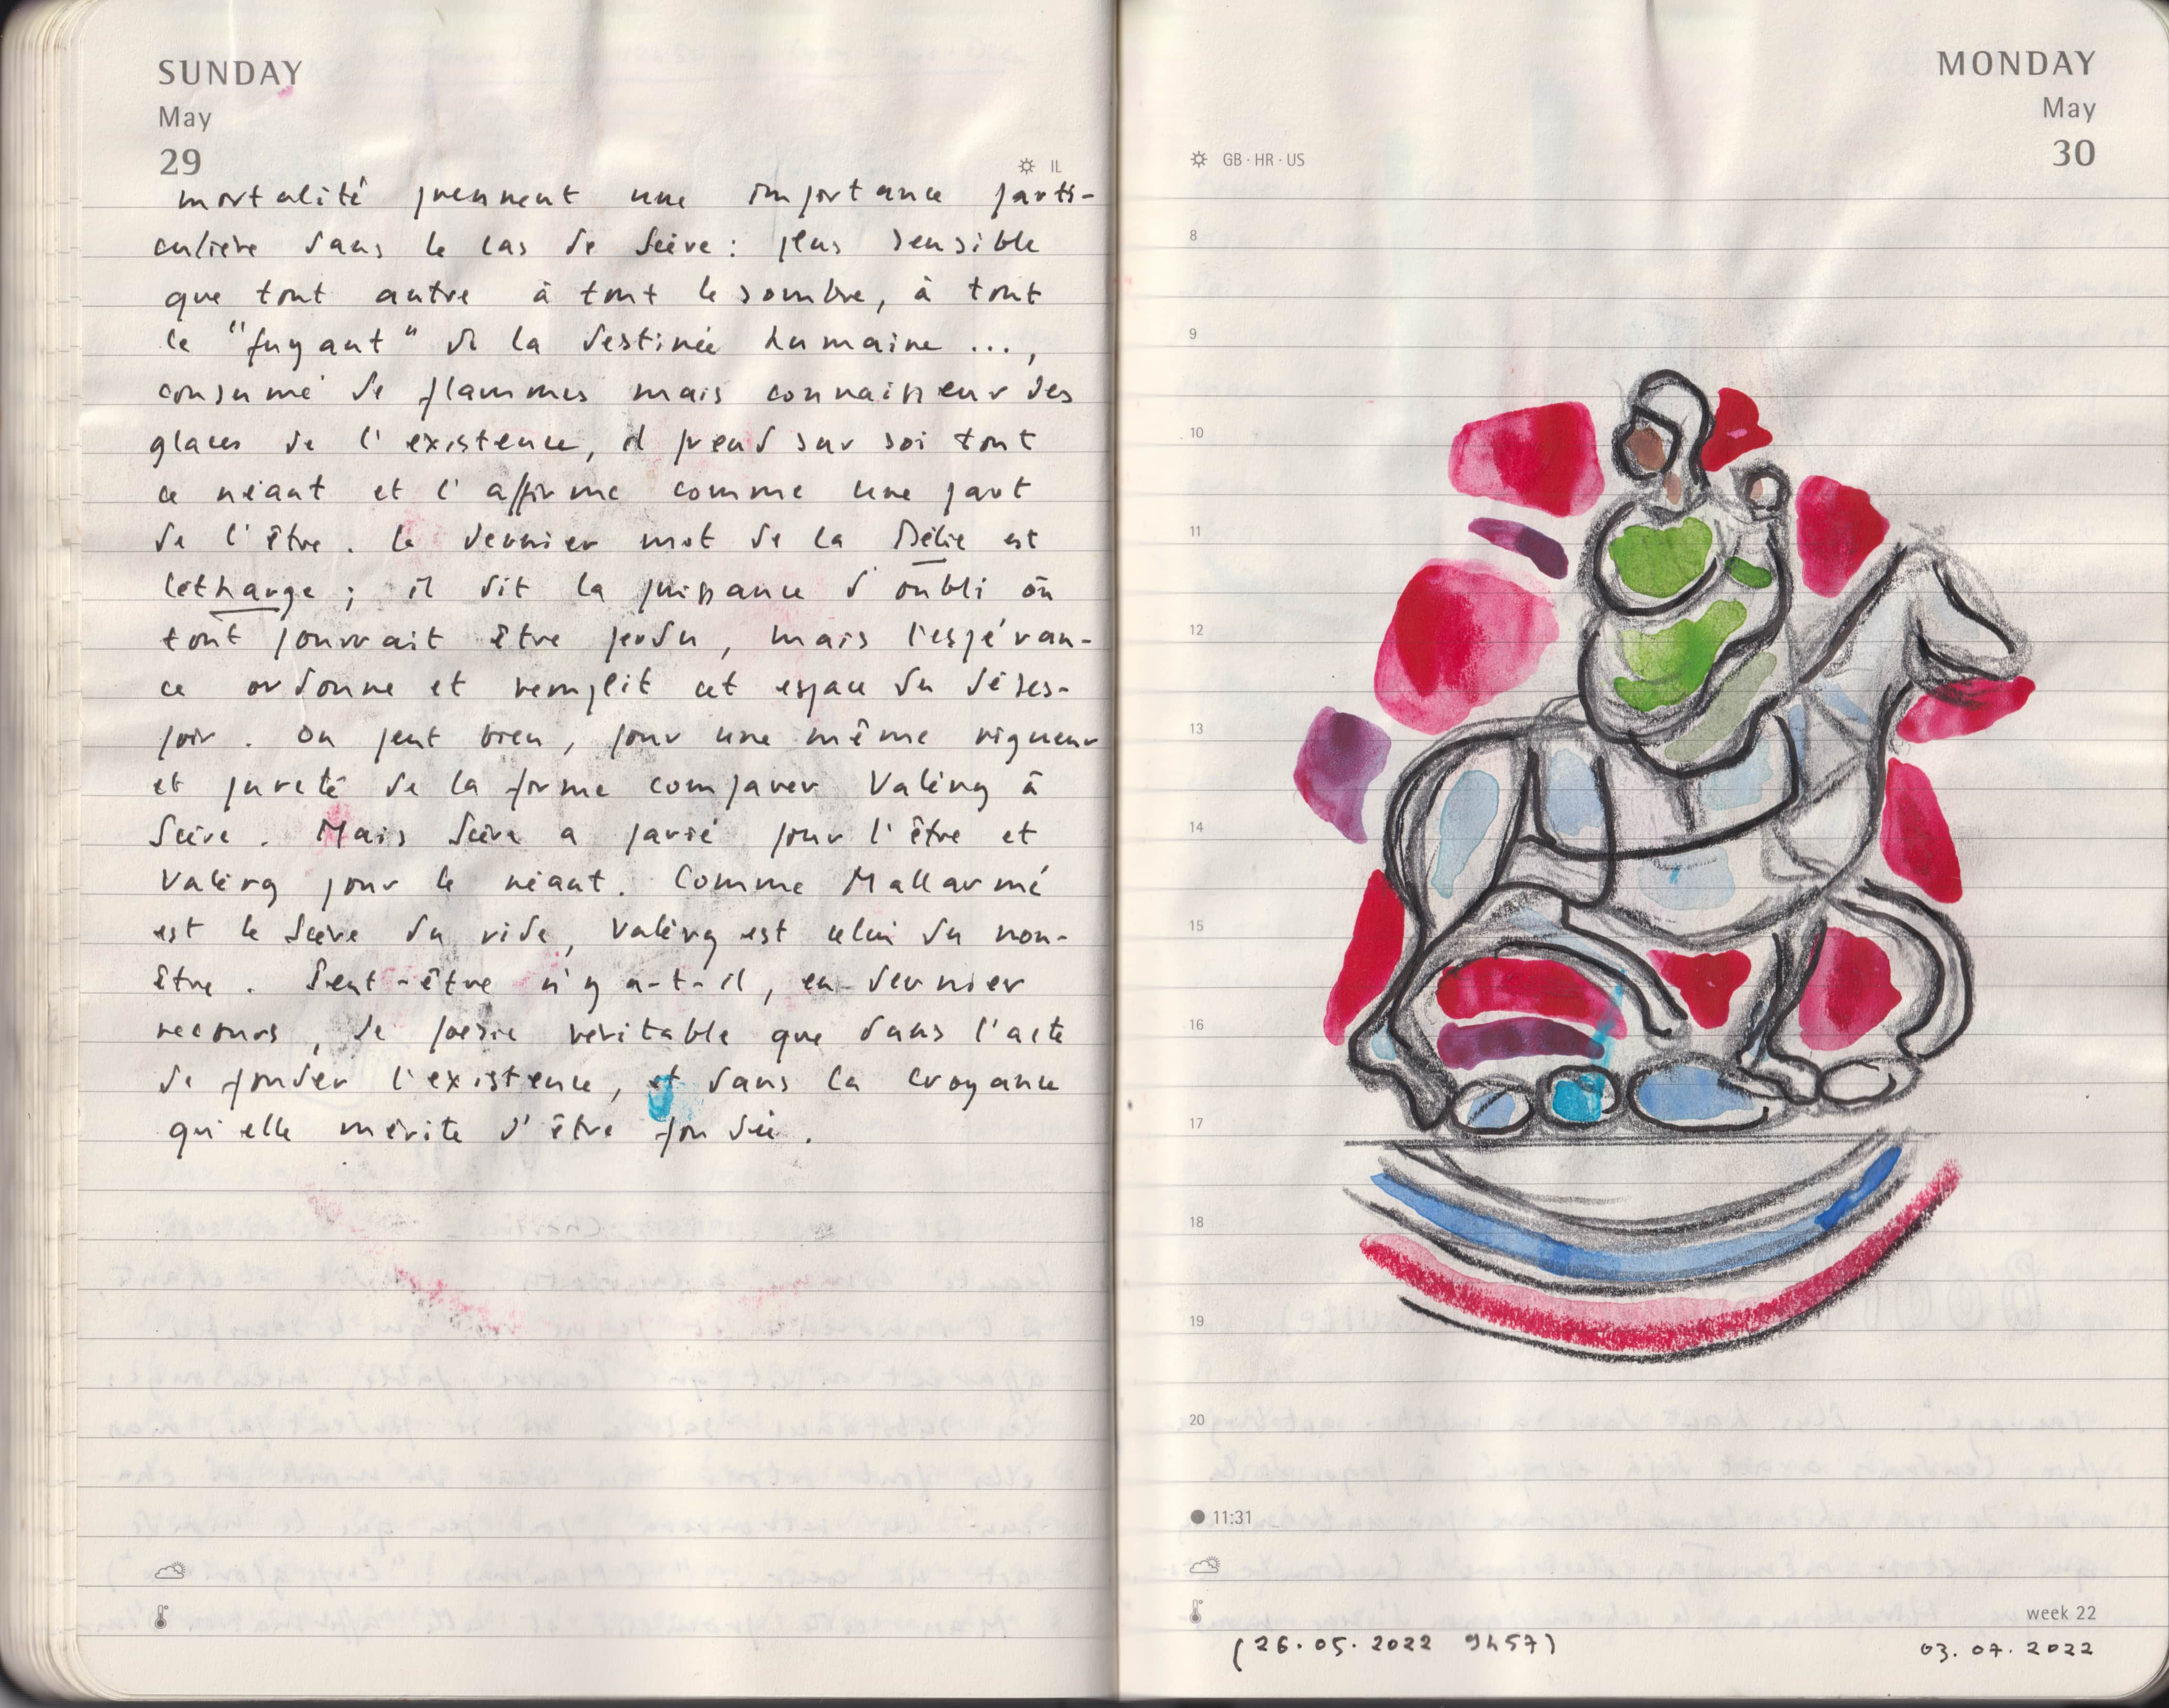 SUNDAY
May
29
IL
mortalité prennent une importance parti-
culière dans le cas de Scève : plus sensible
que tout autre à tout le sombre, à tout
le "fuyant" de la destinée humaine ...,
consumé de flammes mais connaisseur des
glaces de l'existence, il prend sur soi tout
ce néant et l'affirme comme une part
de l'être. Le dernier mot de la Délie est
létharge ; il dit la puissance d'oubli où
tout pourrait être perdu, mais l'espéran-
ce ordonne et remplit cet espace du déses-
poir. On peut bien, pour une même rigueur
et pureté de la forme comparer Valéry à
Scève. Mais Scève a parié pour l'être et
Valéry pour le néant. Comme Mallarmé
est le Scève du vide, Valéry est celui du non-
être. Peut-être n'y a-t-il, en dernier
recours, de poésie véritable que dans l'acte
de fonder l'existence, et dans la croyance
qu'elle mérite d'être fondée.
MONDAY
May
30
GB · HR · US
8
9
10
11
12
13
14
15
16
17
18
19
20
11:31
week 22
(26.05.2022 9h57)
03.07.2022